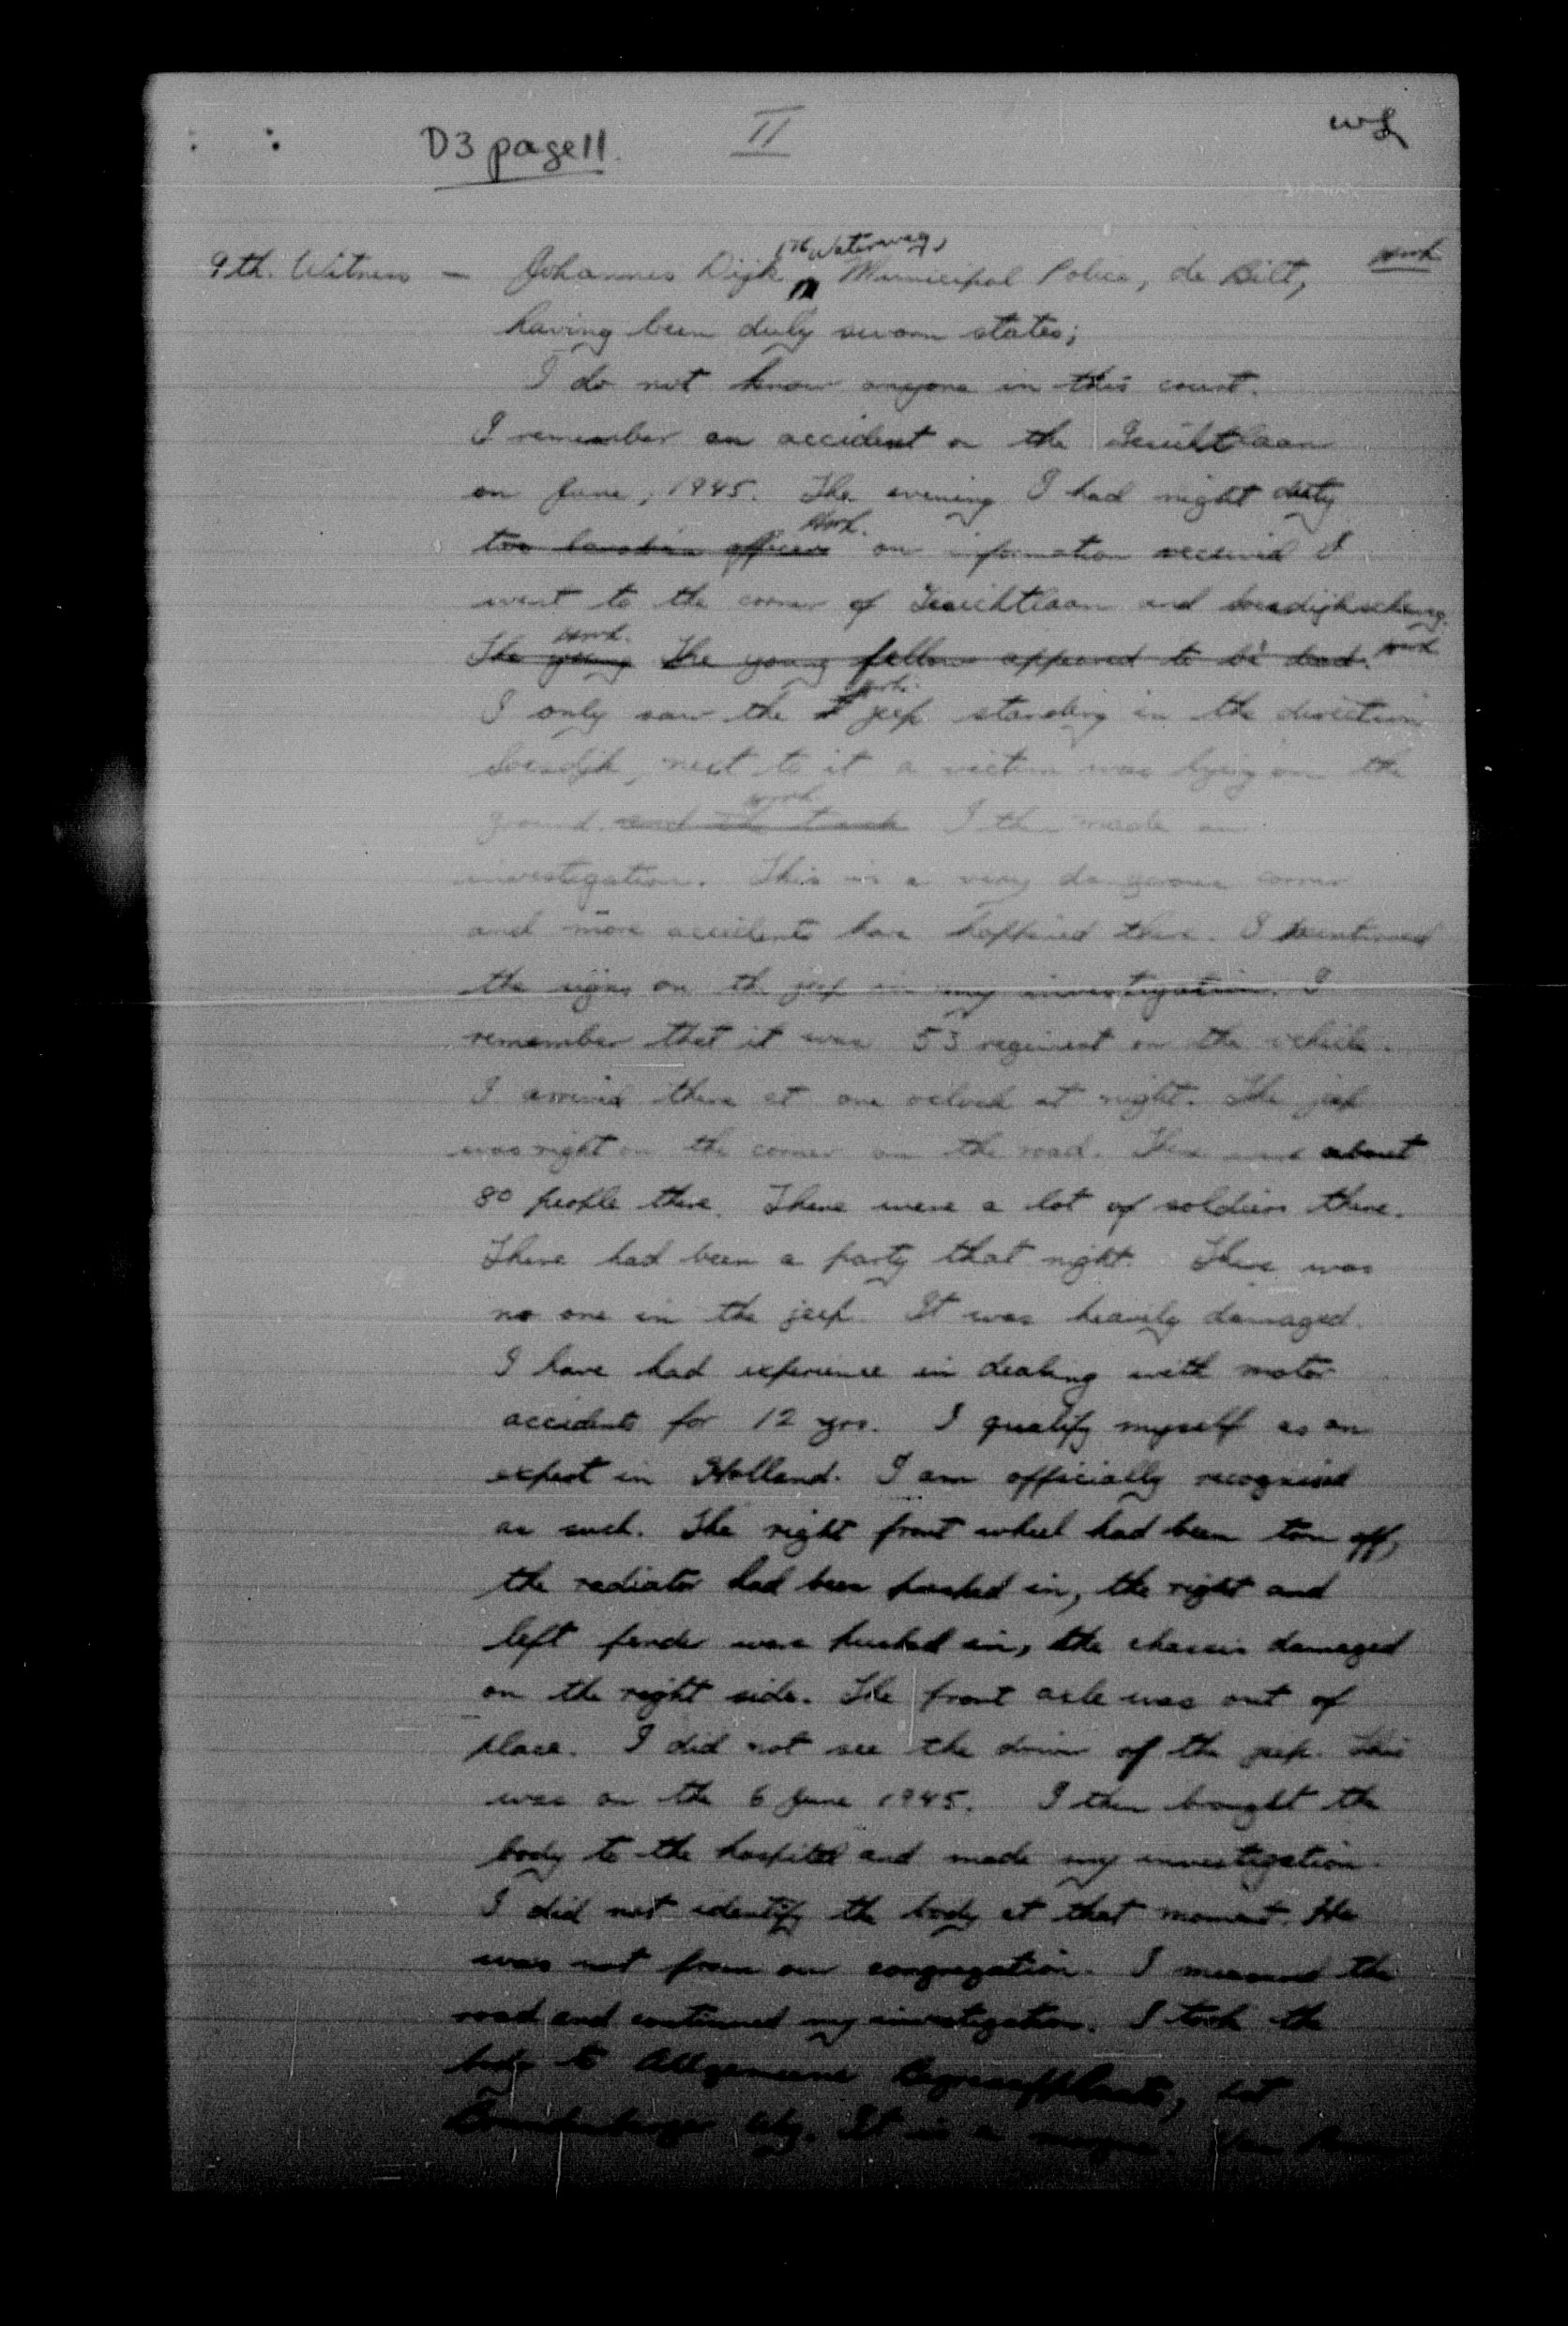 D3 page 11. II
9th. Witness - Johannes Dijk, Municipal Police, de Bilt,
having been duly sworn states;
I do not know anyone in this court.
I remember an accident on the
on June, 1945. The evening I had night duty
officers on information received I
went to the corner of and
The young The young fellow appeared to be dead.
I only saw the jeep standing in the direction
Soesdijk, next to it a victim was lying on the
ground. I then made an
investigation. This is a very dangerous corner
and more accidents have happened there. I mentioned
the signs on the jeep in my investigation. I
remember that it was 53 regiment on the vehicle.
I arrived there at one oclock at night. The jeep
was right on the corner on the road. There were about
80 people there. There were a lot of soldiers there.
There had been a party that night. There was
no one in the jeep. It was heavily damaged.
I have had experience in dealing with motor
accidents for 12 yrs. I qualify myself as an
expert in Holland. I am officially recognised
as such. The right front wheel had been torn off,
the radiator had been pushed in, the right and
left fender were pushed in, the chassis damaged
on the right side. The front axle was out of
place. I did not see the driver of the jeep. This
was on the 6 June 1945. I then brought the
body to the hospital and made my investigation.
I did not identify the body at that moment. He
was not from our congregation. I measured the
road and continued my investigation. I took the
body to
It is a morgue.